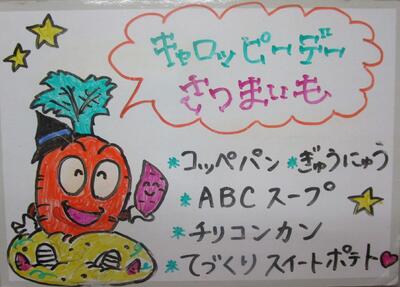 キャロッピーデー
さつまいも
*コッペパン *ぎゅうにゅう
*ABCスープ
*チリコンカン
*てづくりスイートポテト